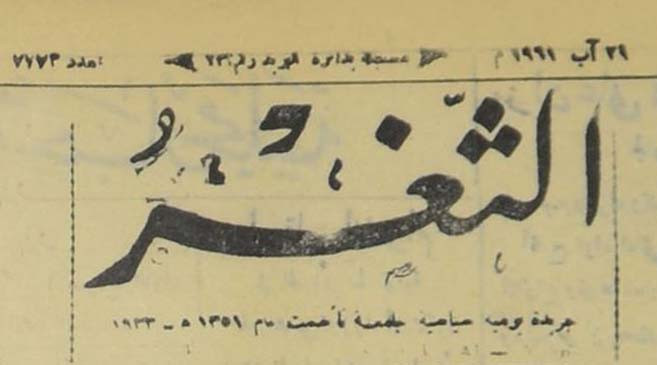 ٢٩ آب ١٩٦١ م مسجلة بدائرة البريد رقم ٢٣ العدد ٧٧٧٣
الثغر
جريدة يومية سياسية جامعة تأسست عام ١٣٥١ ه - ١٩٣٣